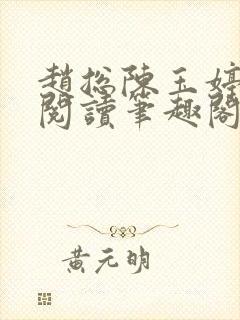 趙總陳玉婷
閱讀筆趣閣
黃元明